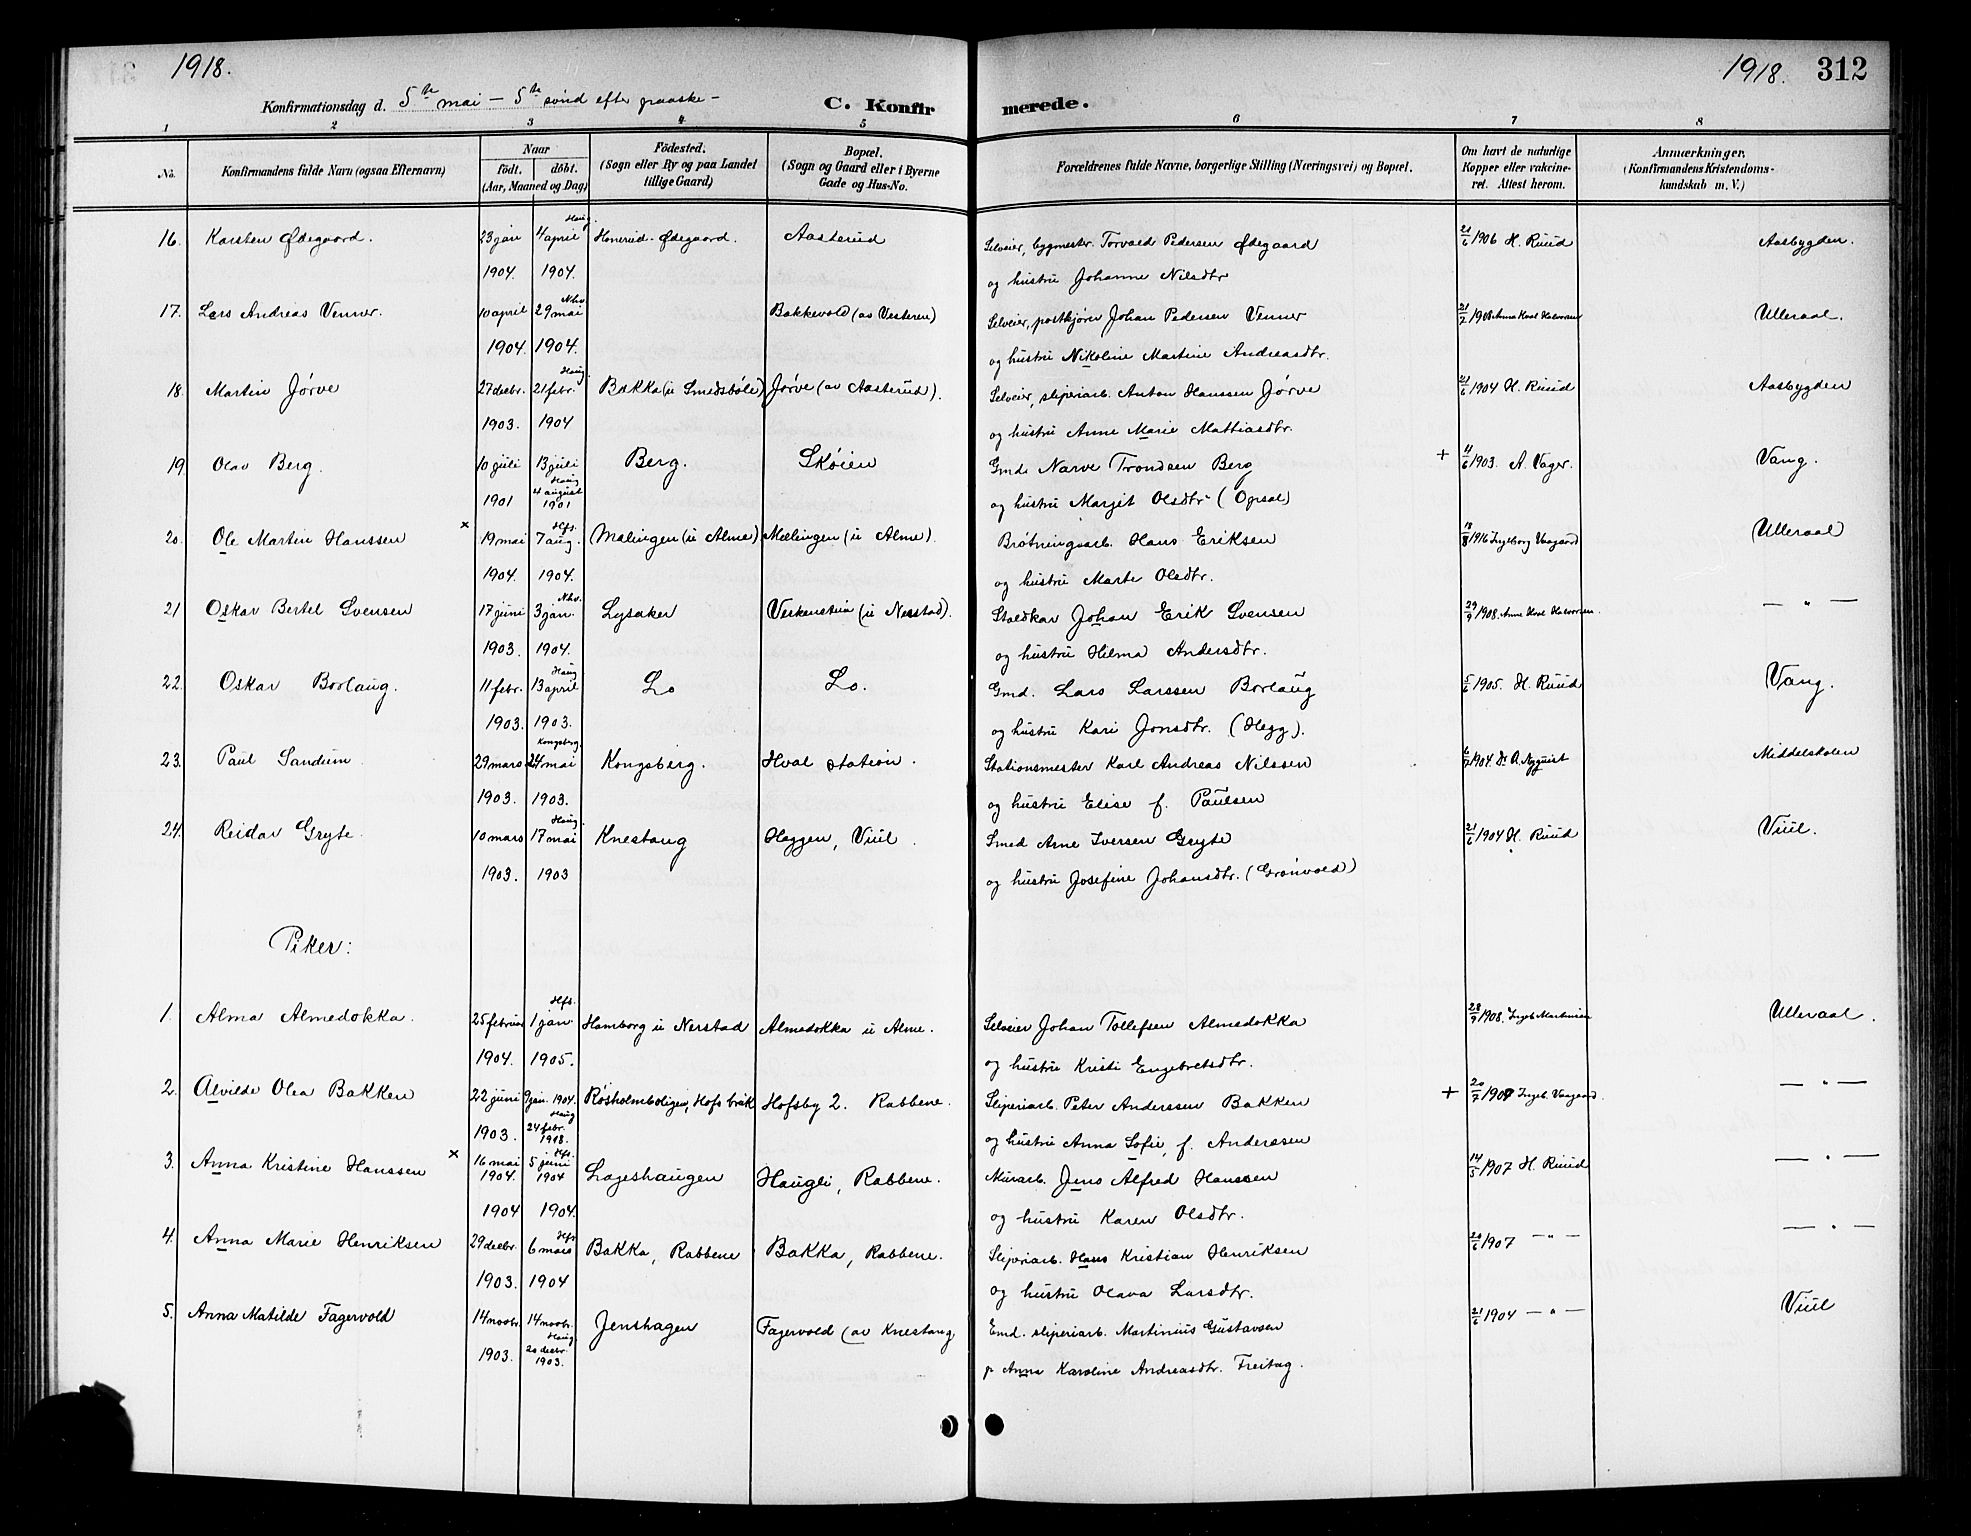 1918.
1918. 312
Konfirmationsdag d. 5te mai – 5te sönd efter paaske –
C. Konfir merede.
1 2 3 4 5 6 7 8
No. Konfirmandens fulde Navn (ogsaa Efternavn) Naar födt. döbt. (Aar, Maaned og Dag) Födested. (Sogn eller By og paa Landet tillige Gaard) Bopæl. (Sogn og Gaard eller i Byerne Gade og Hus-No. Forældrenes fulde Navne, borgerlige Stilling (Næringsvei) og Bopæl. Om havt de naturlige Kopper eller vakcineret. Attest herom. Anmærkninger. (Konfirmandens Kristendomskundskab m. V.)
16. Karsten Ødegaard. 23 jan 4 april Haug. Honerud-Ødegaard. Aasterud Selveier, bygmester Torvald Pedersen Ødegaard 21/6 1906 H. Ruud Aasbygden.
1904. 1904. og hustru Johanne Nilsdtr
17. Lars Andreas Venner. 10 april 29 mai Nhv. Bakkevold (av Vesteren) Selveier, postkjörer Johan Pedersen Venner 21/7 1908 Anna Hval Halvorsen Ulleraal.
1904. 1904. og hustru Nikoline Martine Andreasdtr.
18. Martin Jörve 27 decbr. 21 febr. Haug. Bakka (u Smedsböle) Jörve (av Aasterud). Selveier, sliperiarb. Anton Hanssen Jörve 21/6 1904 H. Ruud Aasbygden
1903. 1904 og hustru Anne Marie Mattiasdtr.
19 Olav Berg. 10 juli 13 juli Berg. Sköien Gmd. Narve Trondsen Berg + 11/6 1903. A. Vager. Vang.
1901 Haug 4 august 1901 og hustru Margit Olsdtr (Opsal)
20. Ole Martin Hanssen x 19 mai 7 aug. Hfs. Malingen (u Alme) Mælingen (u Alme). Brötningsarb. Hans Eriksen 18/8 1916 Ingeborg Vaagaard (Ulleraal)
1904. 1904. og hustru Marte Olsdtr.
21 Oskar Bertel Svensen 17 juni 3 jan. Nhv. Lysaker Veskenstua (u Nerstad). Staldkar Johan Erik Svensen 29/9 1908. Anna Hval Halvorsen. — " —
1903. 1904. og hustru Hilma Andersdtr.
22. Oskar Borlaug. 11 febr. 13 april Haug Lo Lo. Gmd. Lars Larssen Borlaug 5/6 1905. H. Ruud Vang.
1903. 1903. og hustru Kari Jonsdtr. (Hegg).
23. Paul Sandum 29 mars 24 mai Kongsberg. Kongsberg. Hval station. Stationsmester Karl Andreas Nilssen 6/7 1904. Dr A. Nyquist Middelskolen
1903. 1903. og hustru Elise f. Paulsen
24. Reidar Gryte. 10 mars 17 mai Haug. Knestang Heggen, Viul. Smed Arne Iversen Gryte 21/6 1904 H. Ruud Viul.
1903. 1903 og hustru Josefine Johansdtr. (Grönvold)
Piker:
1. Alma Almedokka. 25 februar 1 jan. Hfs. Hamborg u Nerstad Almedokka u Alme. Selveier Johan Tollefsen Almedokka 28/9 1908. Ingeb. Martinsen Ulleraal.
1904. 1905. og hustru Kristi Engebretsdtr.
2. Alvilde Olea Bakken 22 juni 9 jan. 1904. Rösholmboligen, Hofs bruk Hofsby 2. Rabbene. Sliperiarb. Peter Anderssen Bakken + 20/7 1907 Ingeb. Vaagaard. — " —
1903. Haug 24 febr. 1918. og hustru Anna Sofie, f. Anderssen
3. Anna Kristine Hanssen x 16 mai 1904. 5 juni 1904 Hfs. Lageshaugen Haugli, Rabbene. Murarb. Jens Alfred Hanssen 14/5 1907 H. Ruud — " —
1904 1904. og hustru Karen Olsdtr.
4. Anna Marie Henriksen 29 decbr. 6 mars Hfs Bakka, Rabbene Bakka, Rabbene. Sliperiarb. Hans Kristian Henriksen 20/6 1907 — " — — " —
1903. 1904 og hustru Olava Larsdtr.
5. Anna Matilde Fagervold 14 novbr. 14 novbr. Jenshagen Fagervold (av Knestang) Emd. sliperiarb. Martinius Gustavsen 21/6 1904 — " — Viul
1903. Haug 20 decbr. 1903. p Anna Karoline Andreasdtr. Freitag.